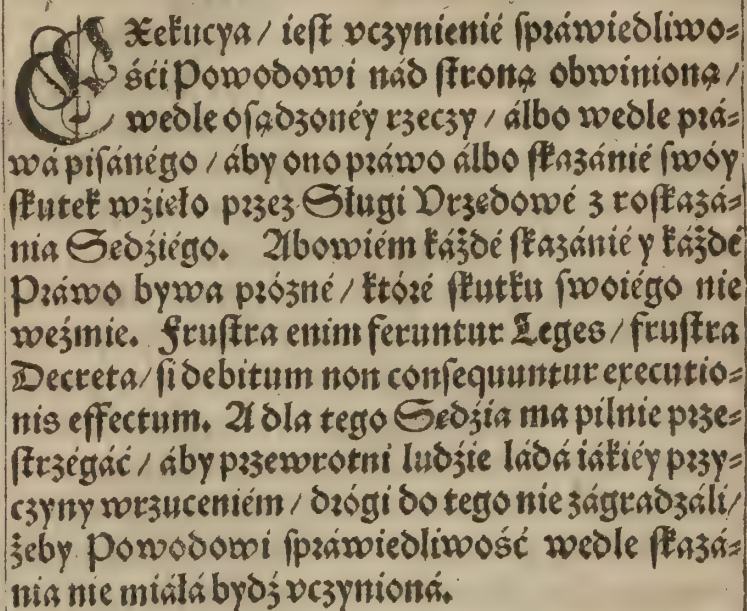 EXekucya / ieſt vczynienié ſpráwiedliwo⸗
śći Powodowi nád ſtroną obwinioną /
wedle oſądzonéy rzeczy / álbo wedle prá⸗
wá piſánégo / áby ono práwo álbo ſkazánié ſwóy
ſkutek wźieło przez Sługi Vrzędowé z roſkazá⸗
nia Sedźiégo. Abowiém káżdé ſkazánié y káżdé
Práwo bywa prózné / któré ſkutku ſwoiégo nie
weźmie. Fruſtra enim feruntur Leges / fruſtra
Decreta / ſi debitum non conſequuntur executio⸗
nis effectum. A dla tego Sedźia ma pilnie prze⸗
ſtrzégáć / áby przewrotni ludźie ládá iákiéy przy⸗
czyny wrzuceniém / drógi do tego nie zágradzáli /
żeby Powodowi ſpráwiedliwość wedle ſkazá⸗
nia nie miáłá bydź vczynioná.